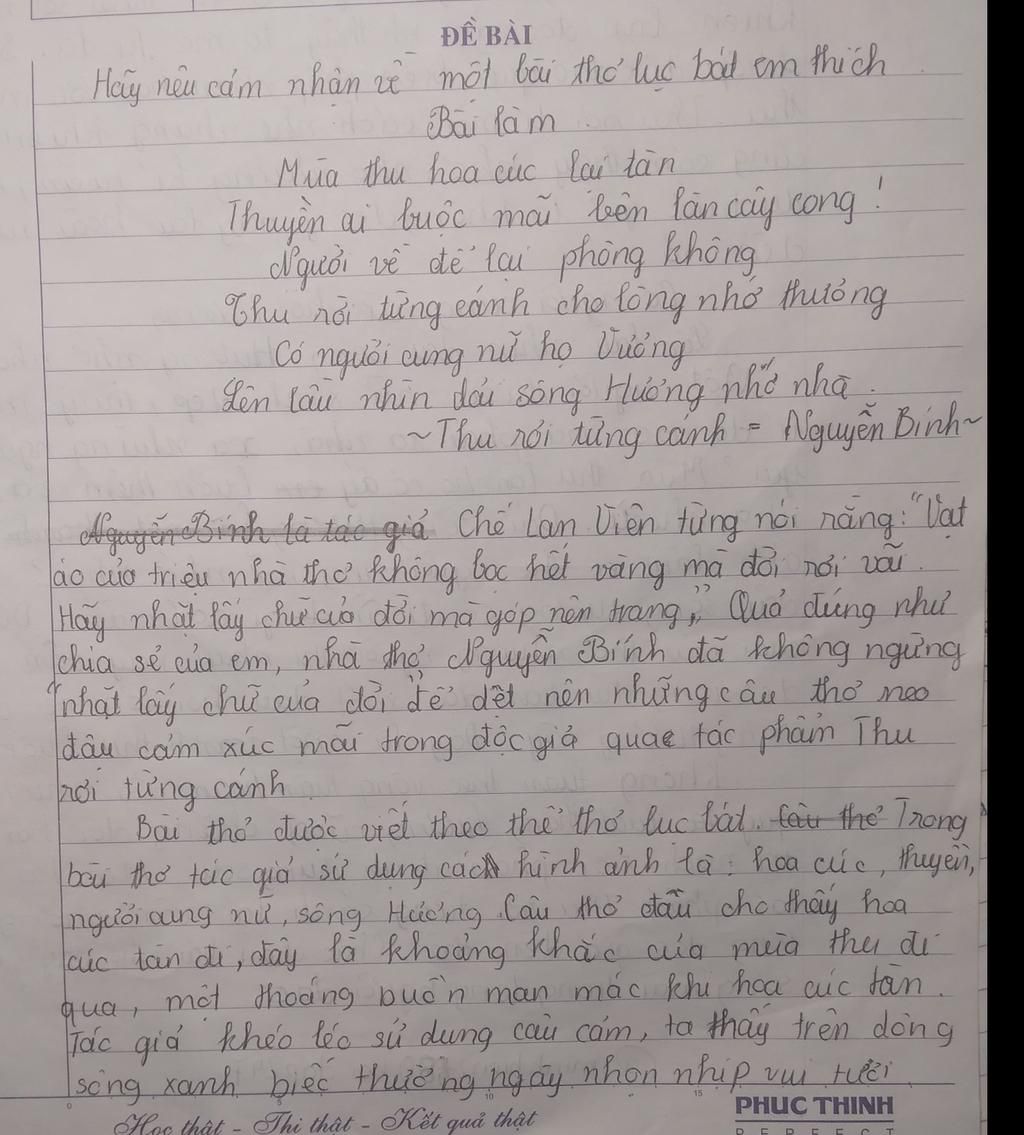 ĐỀ BÀI
Hãy nêu cảm nhận về một bài thơ lục bát em thích
Bài làm
Mùa thu hoa cúc lại tàn
Thuyền ai buộc mãi bên làn cây cong !
Người về để lại phòng không
Thu rơi từng cánh cho lòng nhớ thương
Có người cung nữ họ Vương
Lên lầu nhìn dải sông Hương nhớ nhà.
~Thu rơi từng cánh - Nguyễn Bính~
Nguyễn Bính là tác giả Chế Lan Viên từng nói rằng: "Vạt
áo của triệu nhà thơ không bọc hết vàng mà đời rơi vãi.
Hãy nhặt lấy chữ của đời mà góp nên trang". Quả đúng như
chia sẻ của em, nhà thơ Nguyễn Bính đã không ngừng
"nhặt lấy chữ của đời" để dệt nên những câu thơ neo
đậu cảm xúc mãi trong độc giả qua tác phẩm Thu
rơi từng cánh
Bài thơ được viết theo thể thơ lục bát. Câu thơ Trong
bài thơ tác giả sử dụng các hình ảnh là: hoa cúc, thuyền,
người cung nữ, sông Hương. Câu thơ đầu cho thấy hoa
cúc tàn đi, đây là khoảng khắc của mùa thu đi
qua, một thoáng buồn man mác khi hoa cúc tàn.
Tác giả khéo léo sử dụng câu cảm, ta thấy trên dòng
sông xanh biếc thường ngày nhọn nhịp vui tươi
Học thật - Thi thật - Kết quả thật
PHUC THINH